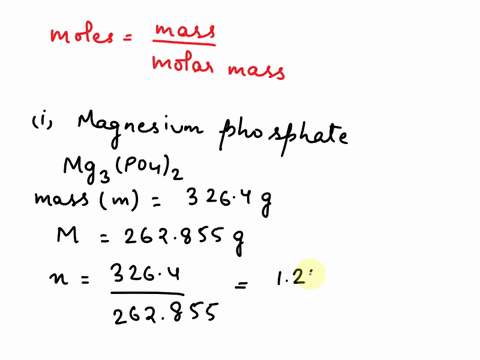 moles = mass / molar mass
(i) Magnesium phosphate
Mg3(PO4)2
mass (m) = 326.4 g
M = 262.855 g
n = 326.4 / 262.855 = 1.2